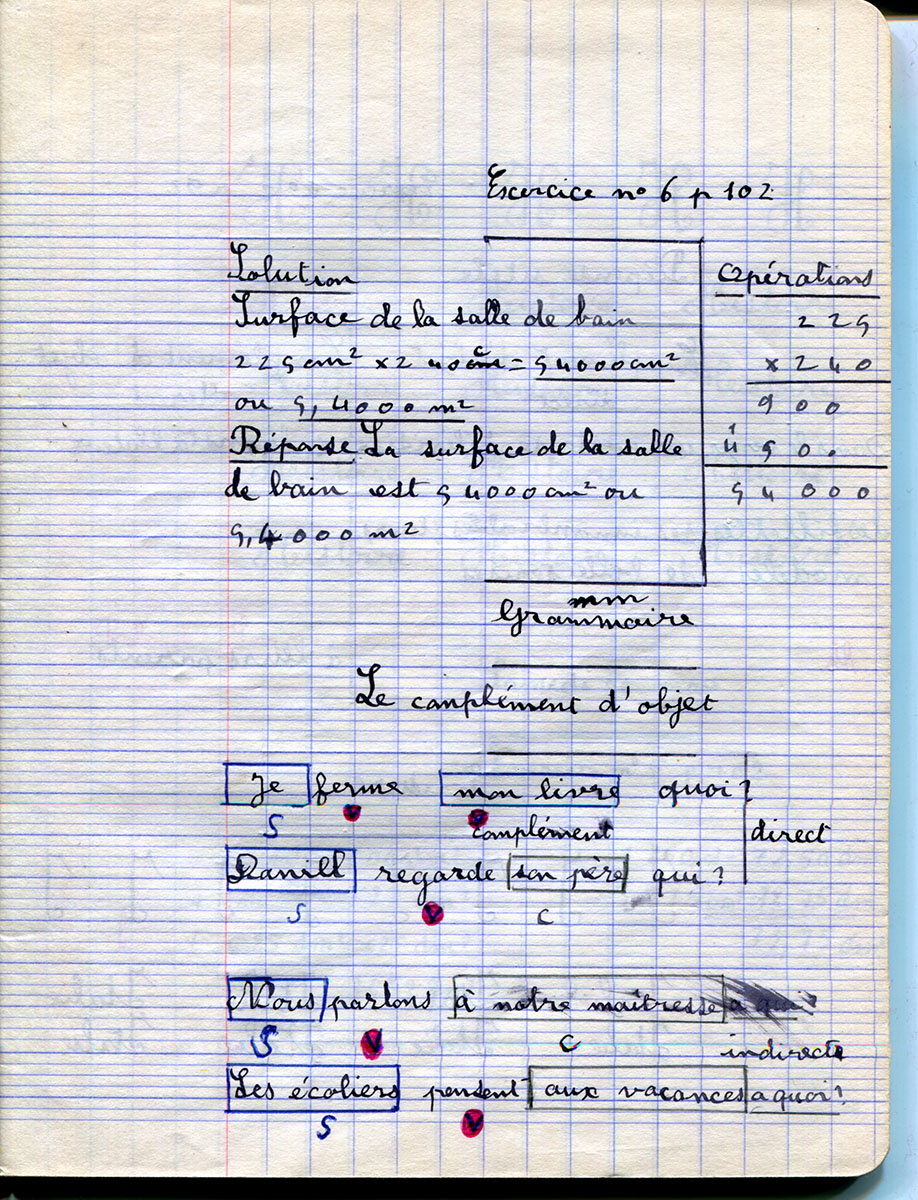 Escercice no 6 p 102
Solution
Opérations
Surface de la salle de bain
225
225 cm² x 2 40 cm = 54000 cm²
x 240
ou 5,4000 m²
900
Réponse La surface de la salle
450.
de bain est 54000 cm² ou
54000
5,4000 m²
mm
Grammaire
Le complément d'objet
Je ferme mon livre quoi ?
S V complément direct
Daniel regarde son père qui ?
S V C
Nous parlons à notre maîtresse a qui ?
S V C indirecte
Les écoliers pensent aux vacances a quoi ?
S V